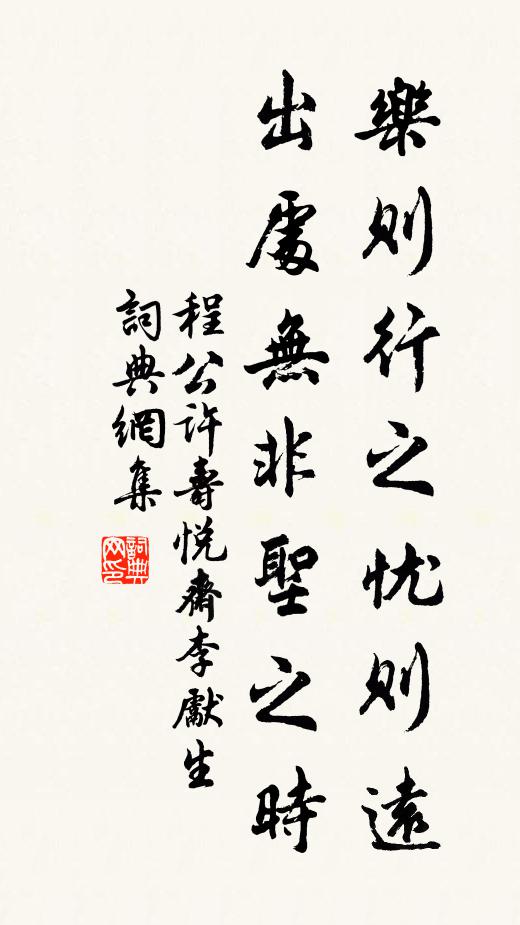 樂則行之忧則遠
出處無非聖之時
程公許壽悅齋李獻生
詞典網集
詞典网印